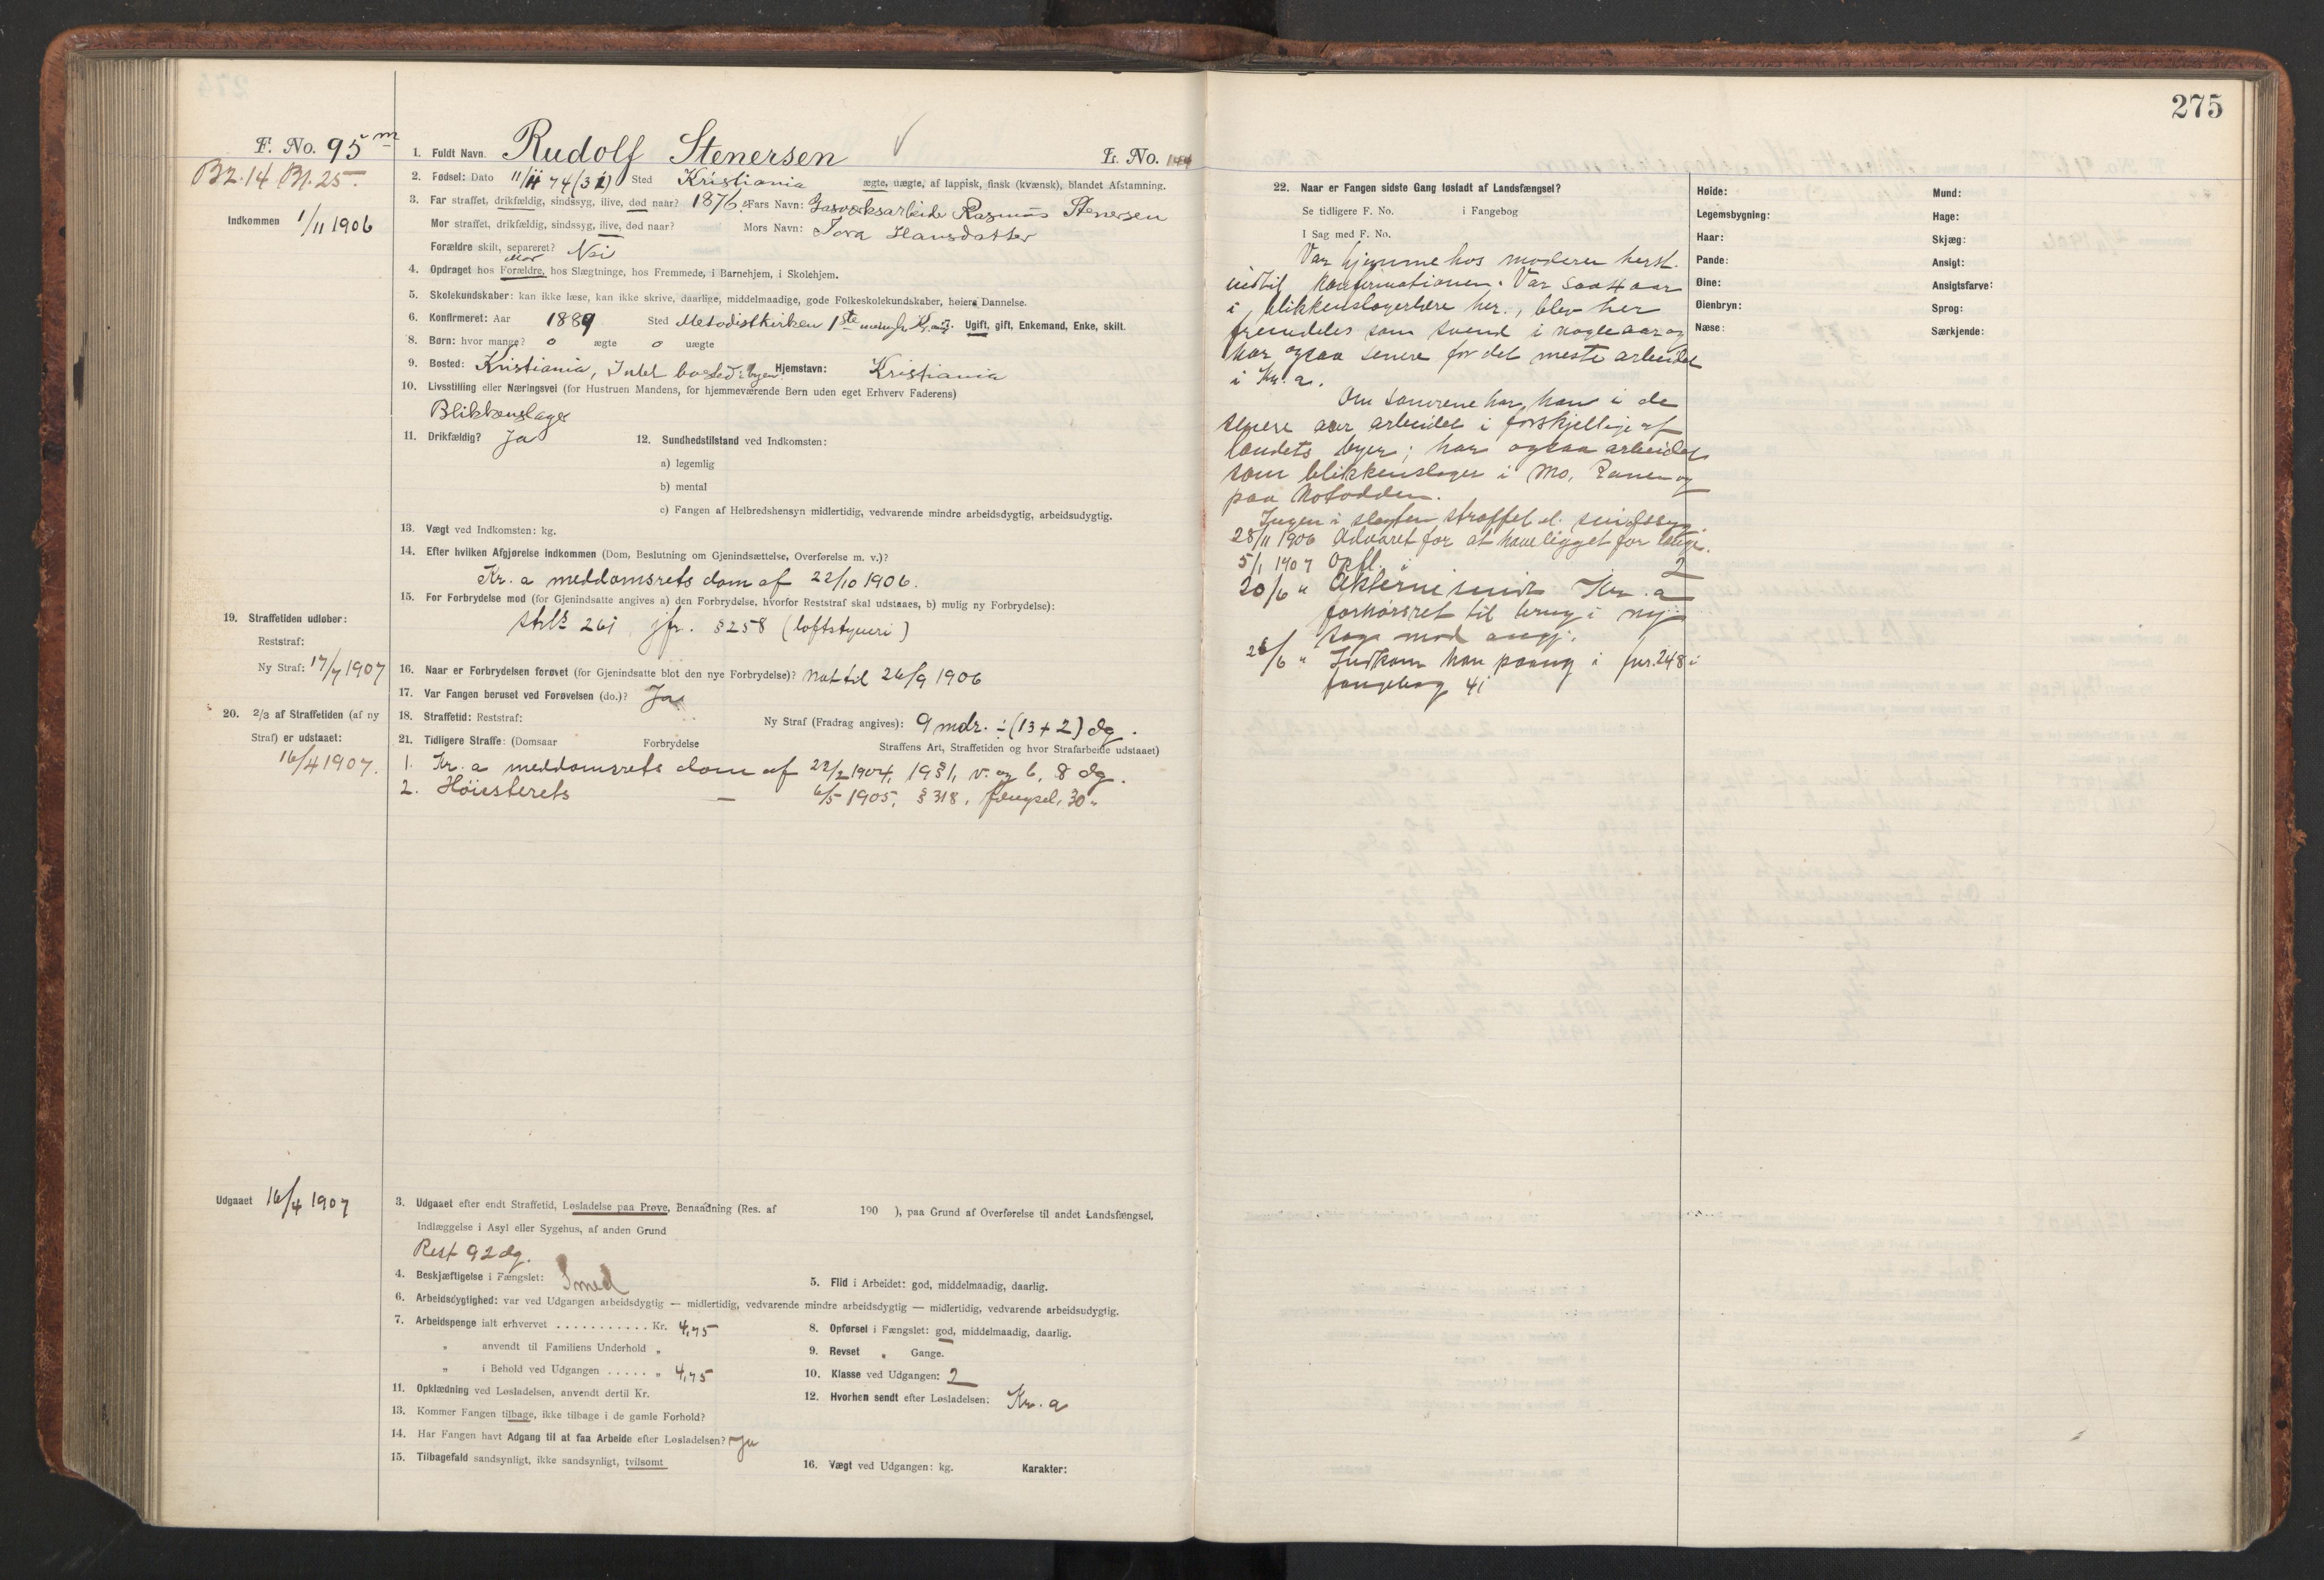 275
F. No. 95 m
Bz. 14 Bl. 25.
Indkommen 1/11 1906
1. Fuldt Navn. Rudolf Stenersen
L. No. 144
2. Fødsel: Dato 11/11 74 (31) Sted Kristiania ægte, uægte, af lappisk, finsk (kvænsk), blandet Afstamning.
3. Far straffet, drikfældig, sindssyg, ilive, død naar? 1876. Fars Navn: Gasverksarbeider Rasmus Stenersen
Mor straffet, drikfældig, sindssyg, ilive, død naar? Mors Navn: Tora Hansdatter
Forældre skilt, separeret? Nei
mor
4. Opdraget hos Forældre, hos Slægtninge, hos Fremmede, i Barnehjem, i Skolehjem.
5. Skolekundskaber: kan ikke læse, kan ikke skrive, daarlige, middelmaadige, gode Folkeskolekundskaber, høiere Dannelse.
6. Konfirmeret: Aar 1889 Sted Metodistkirken 1ste menigh. Kr.a 7. Ugift, gift, Enkemand, Enke, skilt.
8. Børn: hvor mange? 0 ægte 0 uægte
9. Bosted: Kristiania, Intet bosted i byen Hjemstavn: Kristiania
10. Livsstilling eller Næringsvei (for Hustruen Mandens, for hjemmeværende Børn uden eget Erhverv Faderens)
Blikkenslager
11. Drikfældig? Ja 12. Sundhedstilstand ved Indkomsten:
a) legemlig
b) mental
c) Fangen af Helbredshensyn midlertidig, vedvarende mindre arbeidsdygtig, arbeidsudygtig.
13. Vægt ved Indkomsten: kg.
14. Efter hvilken Afgjørelse indkommen (Dom, Beslutning om Gjenindsættelse, Overførelse m. v.)?
Kr. a meddomsrets dom af 22/10 1906.
15. For Forbrydelse mod (for Gjenindsatte angives a) den Forbrydelse, hvorfor Reststraf skal udstaaes, b) mulig ny Forbrydelse):
strl. 261 jfr. § 258 (loftstyveri)
19. Straffetiden udløber:
Reststraf:
Ny Straf: 17/7 1907
16. Naar er Forbrydelsen forøvet (for Gjenindsatte blot den nye Forbrydelse)? nat til 26/9 1906
17. Var Fangen beruset ved Forøvelsen (do.)? Ja
20. 2/3 af Straffetiden (af ny
Straf) er udstaaet:
16/4 1907.
18. Straffetid: Reststraf: Ny Straf (Fradrag angives): 9 mdr. ÷ (13 + 2) dg.
21. Tidligere Straffe: (Domsaar Forbrydelse Straffens Art, Straffetiden og hvor Strafarbeide udstaaet)
1. Kr. a meddomsrets dom af 22/2 1904, 19 § 1, v. og b, 8 dg.
2. Høiesterets — 6/5 1905, § 318, fængsel, 30 "
Udgaaet 16/4 1907
3. Udgaaet efter endt Straffetid, Løsladelse paa Prøve, Benaadning (Res. af 190 ), paa Grund af Overførelse til andet Landsfængsel,
Indlæggelse i Asyl eller Sygehus, af anden Grund
Rest 92 dg.
4. Beskjæftigelse i Fængslet: Smed 5. Flid i Arbeidet: god, middelmaadig, daarlig.
6. Arbeidsdygtighed: var ved Udgangen arbeidsdygtig — midlertidig, vedvarende mindre arbeidsdygtig — midlertidig, vedvarende arbeidsudygtig.
7. Arbeidspenge ialt erhvervet . . . . . . . . . . . Kr. 4,75 8. Opførsel i Fængslet: god, middelmaadig, daarlig.
" anvendt til Familiens Underhold " 9. Revset " Gange.
" i Behold ved Udgangen . . . . . " 4,75 10. Klasse ved Udgangen: 2
11. Opklædning ved Løsladelsen, anvendt dertil Kr. 12. Hvorhen sendt efter Løsladelsen: Kr. a
13. Kommer Fangen tilbage, ikke tilbage i de gamle Forhold?
14. Har Fangen havt Adgang til at faa Arbeide efter Løsladelsen? Ja
15. Tilbagefald sandsynligt, ikke sandsynligt, tvilsomt 16. Vægt ved Udgangen: kg. Karakter:
22. Naar er Fangen sidste Gang løsladt af Landsfængsel?
Se tidligere F. No. i Fangebog
I Sag med F. No.
Var hjemme hos moderen herst.
indtil konfirmationen. Var saa 4 aar
i blikkenslagerlære her., blev her
fremdeles som svend i nogle aar og
har ogsaa senere for det meste arbeidet
i Kr. a.
Om somrene har han i de
senere aar arbeidet i forskjellige af
landets byer; har ogsaa arbeidet
som blikkenslager i Mo, Ranen og
paa Notodden.
Ingen i slegten straffet el. sindssyg.
28/11 1906 Advaret for at have ligget for længe.
5/1 1907 Opfl. i 2
20/6 " Akterne sendt Kr. a
forhørsret til brug i ny
sag mod angj.
26/6 " Indkom han paany i fnr. 248 i
fangebog 41
Høide:
Legemsbygning:
Haar:
Pande:
Øine:
Øienbryn:
Næse:
Mund:
Hage:
Skjæg:
Ansigt:
Ansigtsfarve:
Sprog:
Særkjende: